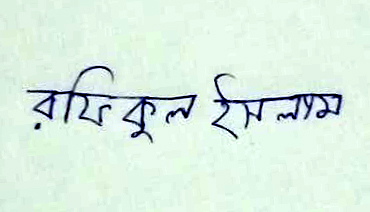 রফিকুল ইসলাম